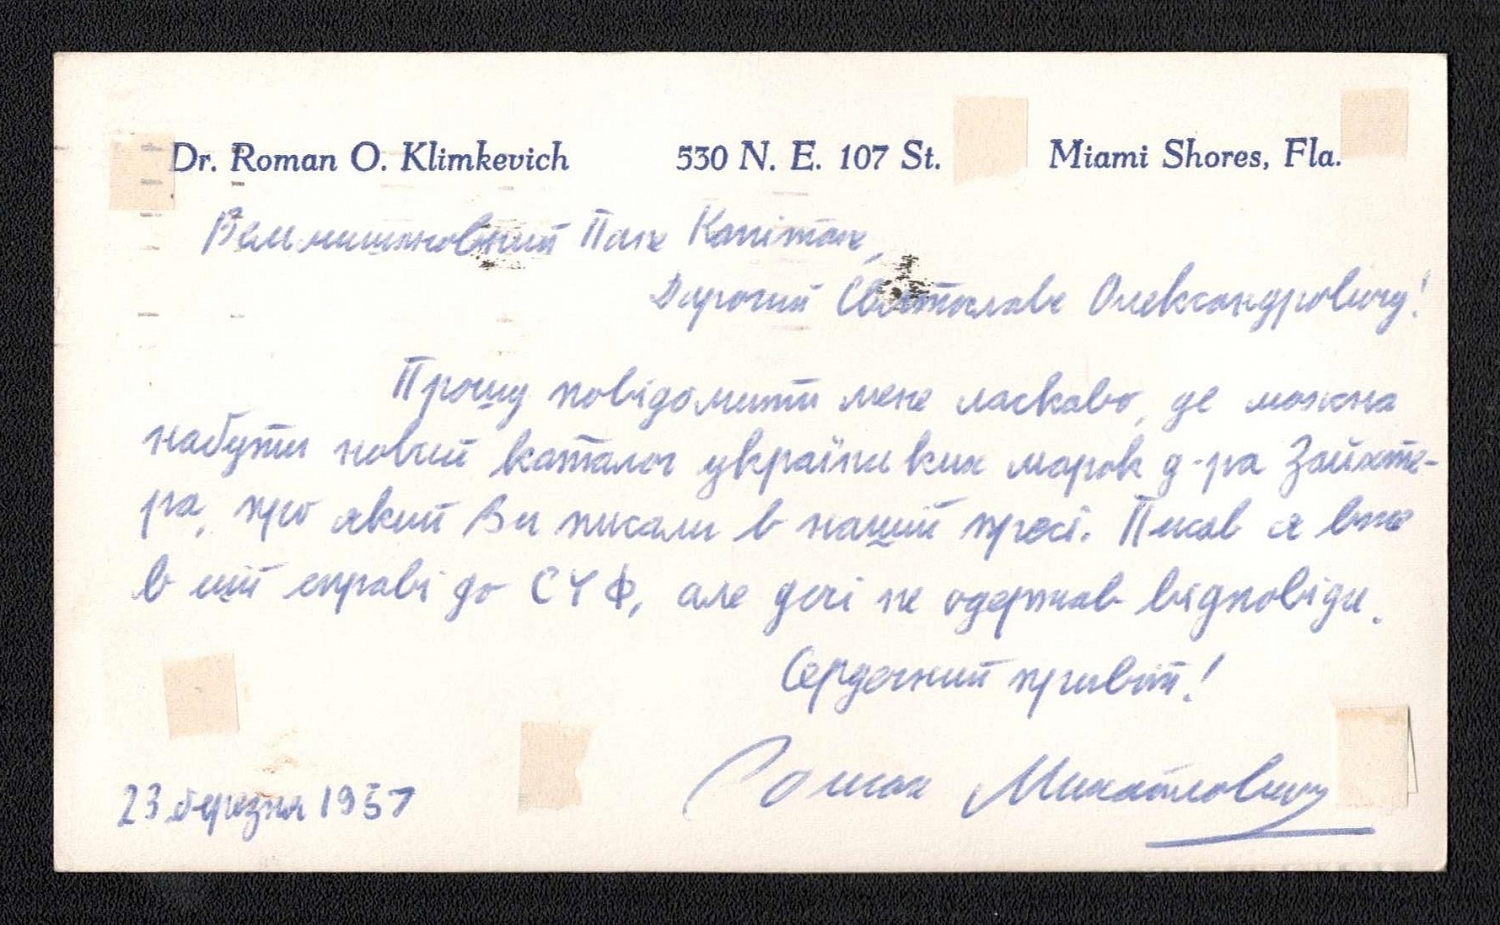 Dr. Roman O. Klimkevich 530 N. E. 107 St. Miami Shores, Fla.
Вельмишановний Пане Капітане,
Дорогий Святославе Олександровичу!
Прошу повідомити мене ласкаво, де можна
набути новий каталог українських марок д-ра Зайхте-
ра, про який Ви писали в нашій пресі. Писав я вже
в цій справі до СУФ, але досі не одержав відповіди.
Сердечний привіт!
Роман
23 березня 1957